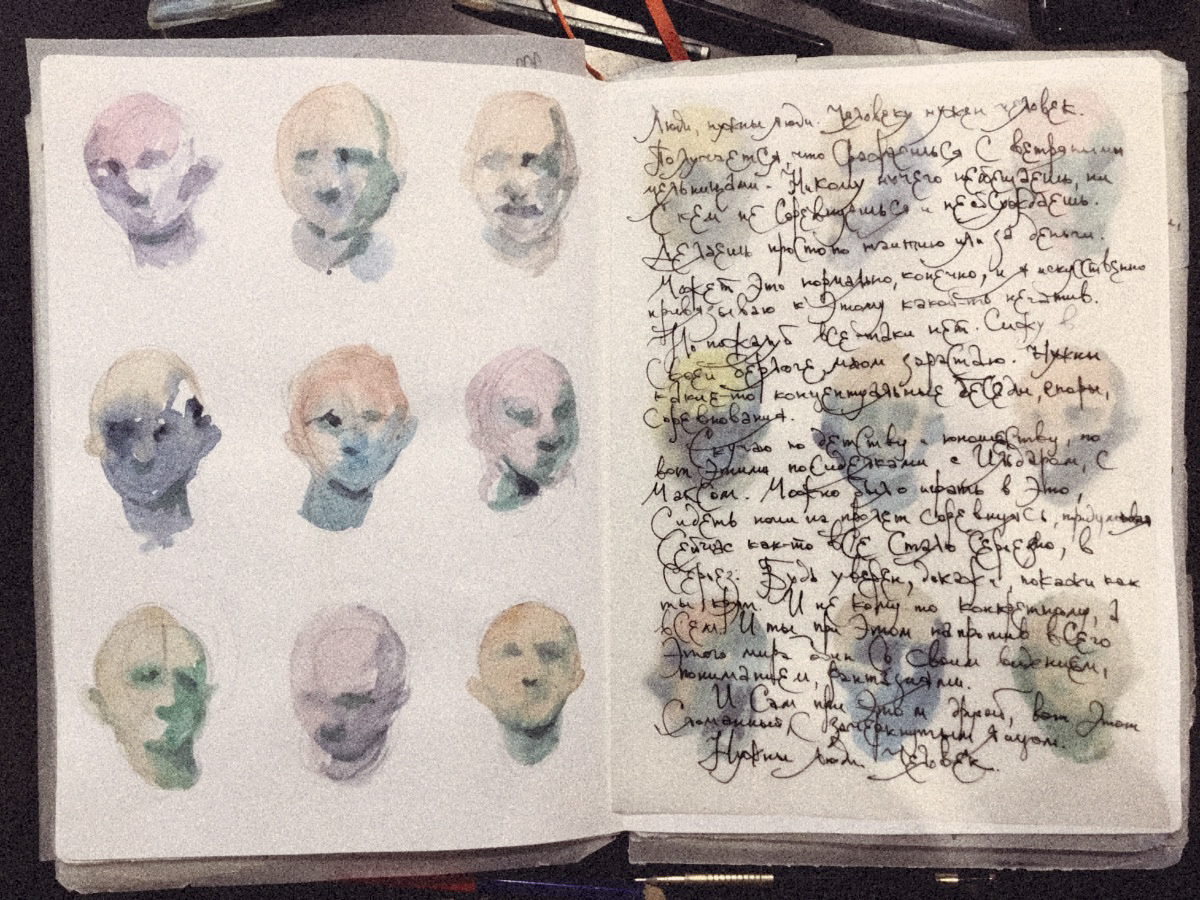 Люди, нужны люди. Человеку нужен человек.
Получается, что сражаешься с ветряными
мельницами. Никому ничего не обещаешь, ни
с кем не соревнуешься и не обсуждаешь.
Делаешь просто по наитию или за деньги.
Может это нормально, конечно, и я искусственно
привязываю к этому какой-то негатив.
Но пожалуй все-таки нет. Сижу в
своей берлоге, мхом зарастаю. Нужны
какие-то концептуальные беседы, споры,
соревнования.
Скучаю по детству и юношеству, по
вот этими посиделками с Ильдаром, с
Максом. Можно было играть в это,
сидеть ночи на пролет соревнуясь, придумывая
Сейчас как-то все стало серьезно, в
серьез. Будь уверен, докажи, покажи как
ты крут. И не кому то конкретному, а
всем. И ты при этом напротив всего
этого мира один со своим видением,
пониманием, фантазиями.
И сам при этом другой, вот этот
сломанный, с зачеркнутым лицом.
Нужны люди. Человек.